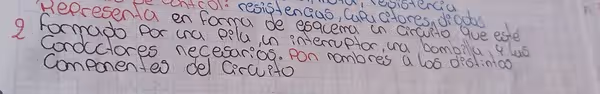 de control: resistencias, capacitores, diodos
2 Representa en forma de esquema un circuito que esté
formado por una pila, un interruptor, una bombilla, y los
conductores necesarios. Pon nombres a los distintos
componentes del circuito